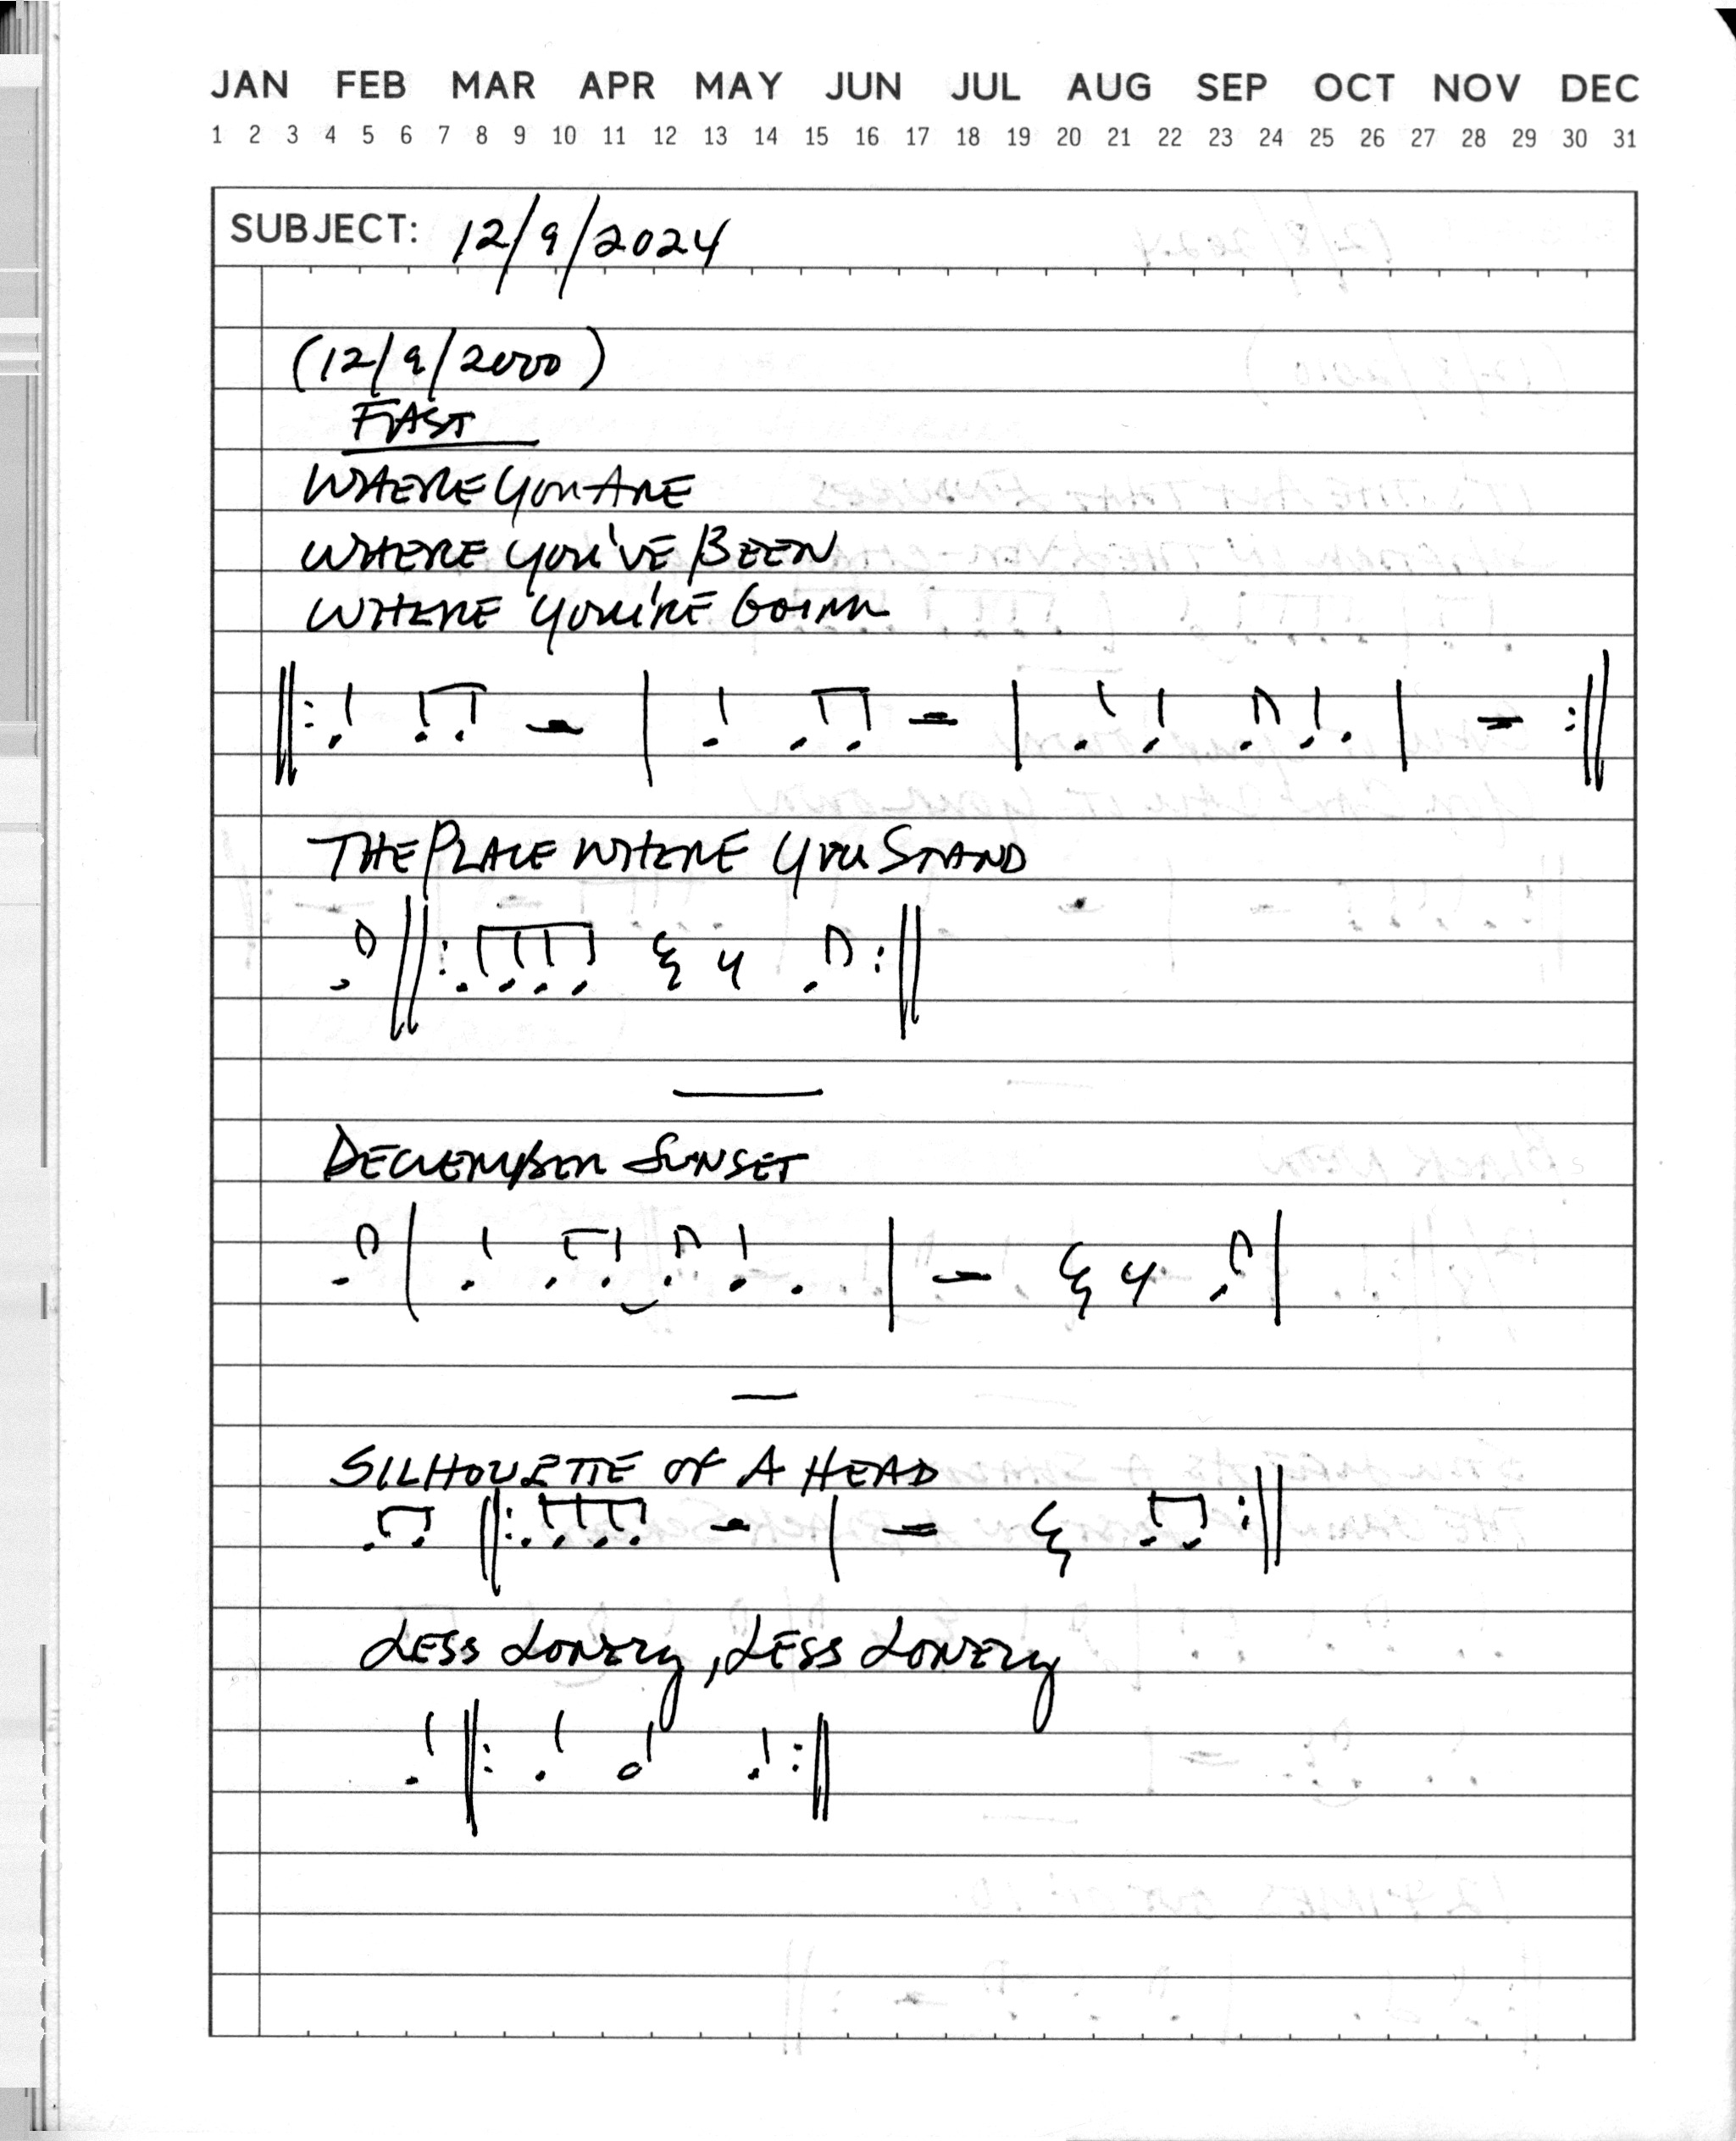 JAN FEB MAR APR MAY JUN JUL AUG SEP OCT NOV DEC
1 2 3 4 5 6 7 8 9 10 11 12 13 14 15 16 17 18 19 20 21 22 23 24 25 26 27 28 29 30 31
SUBJECT: 12/9/2024
(12/9/2000)
FAST
WHERE YOU ARE
WHERE YOU'VE BEEN
WHERE YOU'RE GOING
THE PLACE WHERE YOU STAND
DECEMBER SUNSET
SILHOUETTE OF A HEAD
LESS LONELY, LESS LONELY